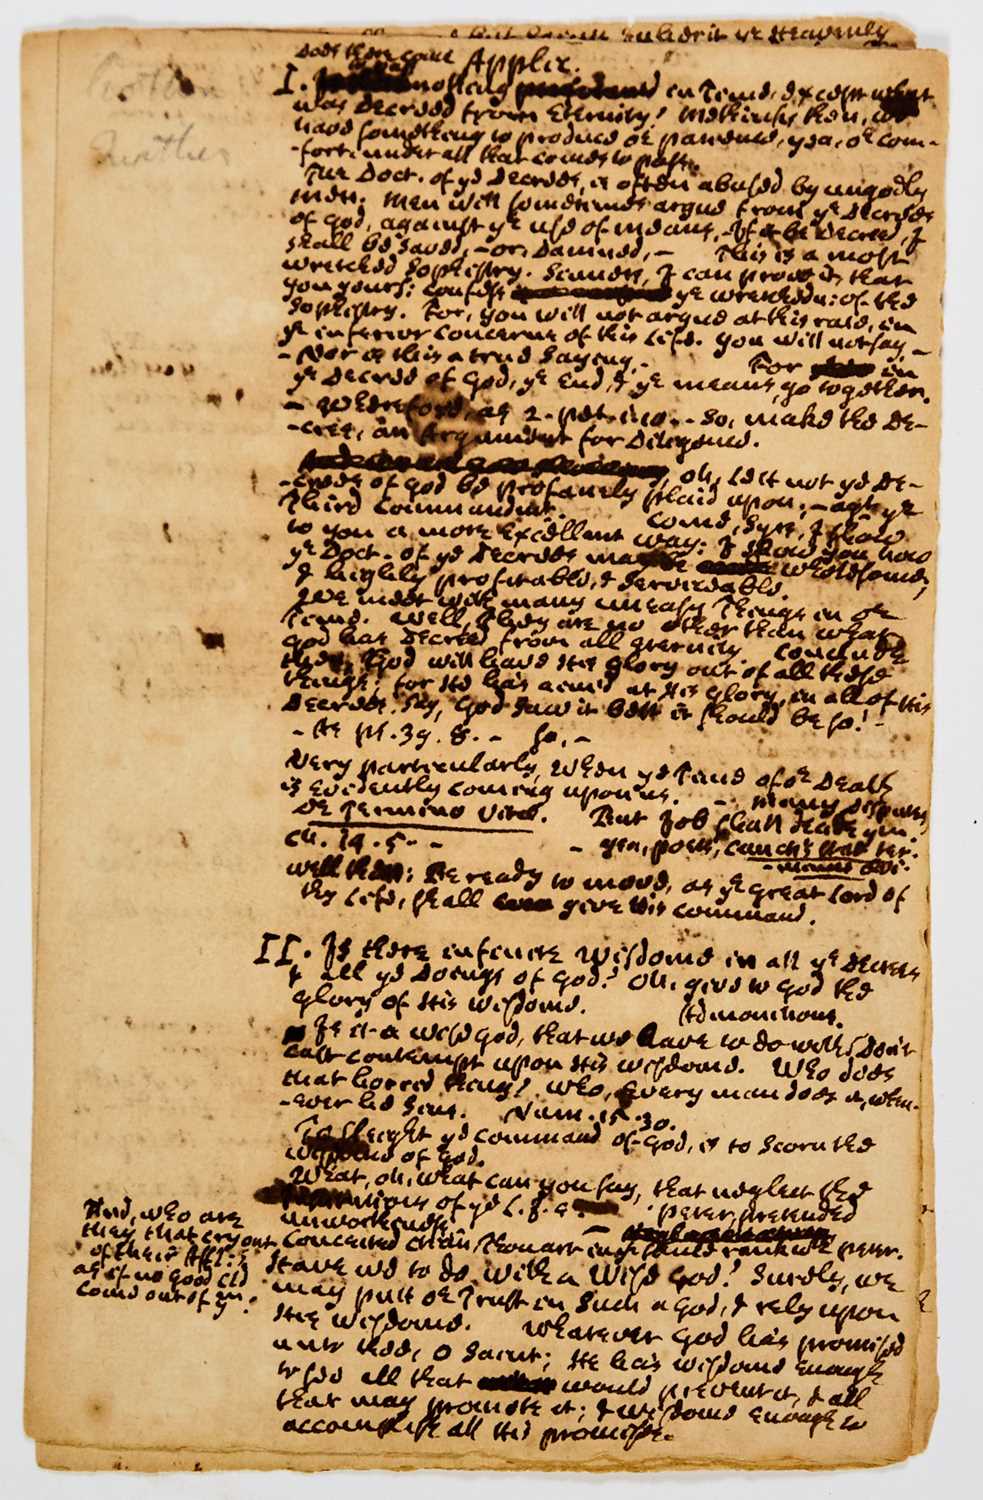 inherit ye Heavenly
Does then come Applic.
I. nothing in Time, Except what
was Decreed from Eternity! Methinks then, we
have something to produce or patience, yea, or com-
-fort, under all that comes to pass.
The Doct. of ye Decrees, is often abused by ungodly
men. Men will sometimes argue from ye Decrees
of God, against ye use of means, If it be Decreed, I
shall be saved, - or, Damned, - This is a most
wretched Sophistry. Sinners, I can prove it, that
you yours: confess ye wretchedn: of the
Sophistry. For, you will not argue at this rate, in
ye inferior concerns of this Life. you will not say, -
- Nor is this a true saying, - For in
ye Decree of God, ye End, & ye means, go together.
- Wherefore, as 2. Pet. 1. 10. - So, make the De-
-cree, an Argument for Diligence.
Oh, Let not ye De-
-crees of God be profanely plaid upon; - agt ye
Third Commandmt. Come, Syrs, I show
to you a more Excellent way: I show you how
ye Doct. of ye Decrees may be wholesome,
& highly profitable, & serviceable.
We meet with many uneasy Things in or
Time. Well, They are no other than what
God has Decreed from all Eternity. Conclude
then, God will have His Glory out of all these
things; for He has aim'd at His Glory, in all of His
Decrees. Say, God saw it best it should be so! -
- As Ps. 39. 8. - So, -
Very particularly, When ye Time of or Death
is Evidently coming upon us. - - many disputes,
De Termino Vitæ. But Job shall decide ym.
ch. 14. 5. - - - yea, poets,
Well then; Be ready to move, as ye great Lord of
thy Life, shall give His command.
II. Is there infinite Wisdome in all ye Decrees
& all ye Doings of God? Oh, give to God the
glory of His Wisdome. Admonitions.
Is it a wise God, that we have to do with? Don't
cast contempt upon His wisdome. Who does
that horrid thing? Who, Every man does it, when-
-ever he sins. Num. 15. 30.
To slleight ye command of God, is to scorn the
wisdome of God.
What, oh, what can you say, that neglect the
Institutions of ye L. J. C. Peter, pretended
unworthiness. -
Conceited Christian, thou art in should rank wth Peter.
And, who are
they that cry out
of their
as if no good cld
come out of ym.
Have we to do with a Wise God? Surely, we
may putt or Trust in such a God, & rely upon
His Wisdome. Whatever God has promised
unto thee, O Saint; He has wisdome Enough
to see all that would prevent it, & all
that may promote it; & wisdome Enough to
accomplish all His promise.